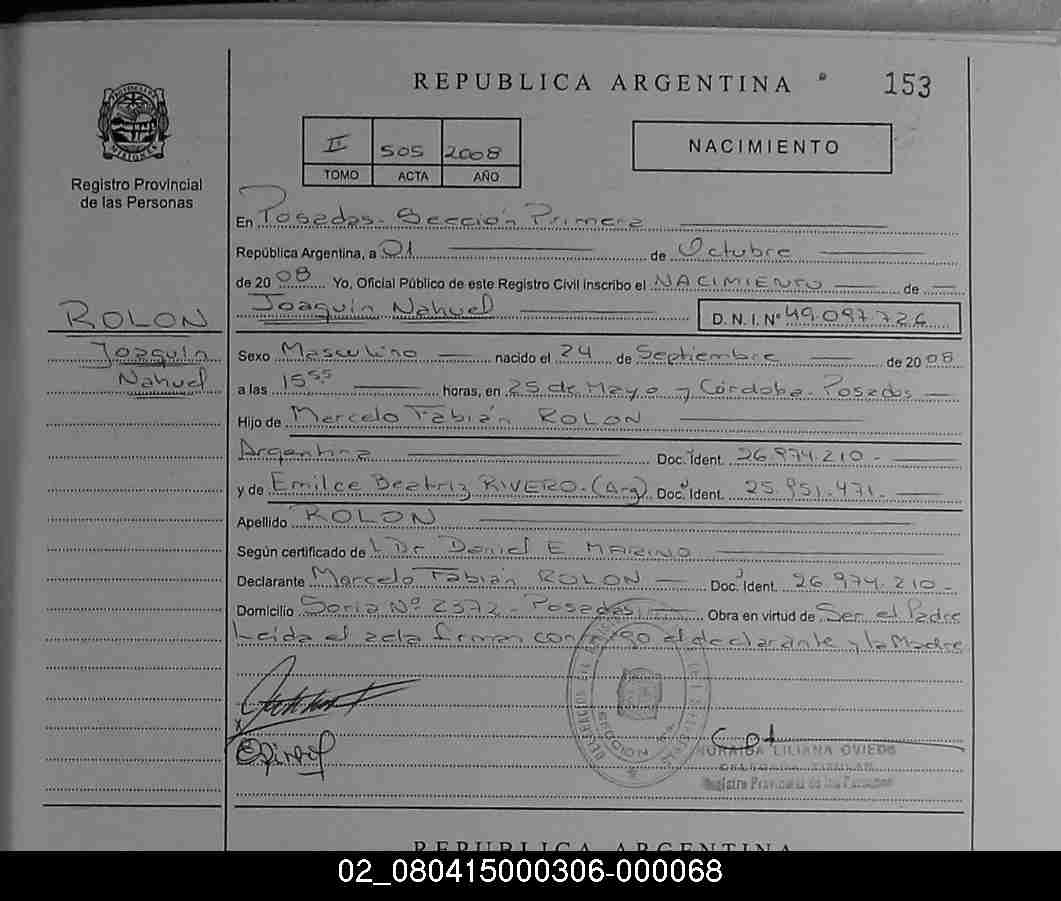 REPUBLICA ARGENTINA 153
II 505 2008
TOMO ACTA AÑO
NACIMIENTO
Registro Provincial
de las Personas
En Posadas - Sección Primera
República Argentina, a 01 de Octubre
de 2008 Yo, Oficial Público de este Registro Civil inscribo el NACIMIENTO de
Joaquín Nahuel D.N.I. Nº 49.097.726
ROLON
Joaquín
Nahuel
Sexo Masculino nacido el 24 de Septiembre de 2008
a las 15⁵⁵ horas, en 25 de Mayo y Córdoba - Posadas
Hijo de Marcelo Fabián ROLON
Argentina Doc. Ident. 26.974.210 -
y de Emilce Beatriz RIVERO - (Arg) Doc. Ident. 25.951.471 -
Apellido ROLON
Según certificado de Dr Daniel E MARINO
Declarante Marcelo Fabián ROLON Doc. Ident. 26.974.210 -
Domicilio Soria Nº 2372 - Posadas Obra en virtud de Ser el Padre
Leída el acta firman conmigo el declarante y la Madre
LILIANA OVIEDO
Registro Provincial de las Personas
REPUBLICA ARGENTINA
02_080415000306-000068